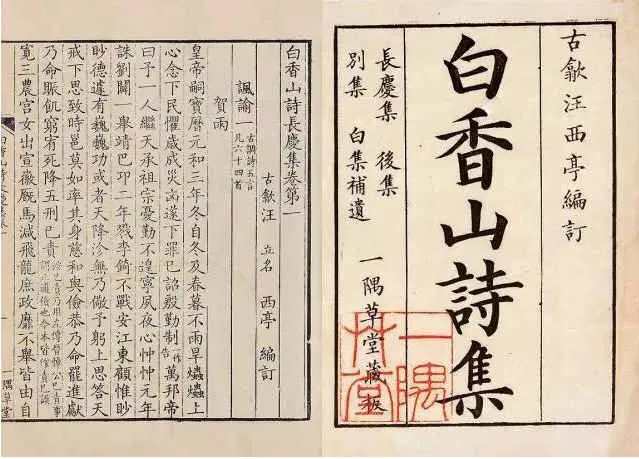 古歙汪西亭編訂
白香山詩集
長慶集 後集
別集 白集補遺
一隅草堂藏板
一隅草堂
白香山詩長慶集卷第一
古歙汪 立名 西亭 編訂
諷諭一 古調詩五言 凡六十四首
賀雨
皇帝嗣寶曆元和三年冬自冬及春暮不雨旱爞爞上
心念下民懼歲成災凶遂下罪已詔殷勤制一作告萬邦帝
曰予一人繼天承祖宗憂勤不遑寧夙夜心忡忡元年
誅劉闢一舉靖巴邛二年戮李錡不戰安江東顧惟眇
眇德遽有巍巍功或者天降沴無乃儆予躬上思答天
戒下思致時邕莫如率其身慈和與儉恭乃命罷進獻
乃命賑飢窮宥死降五刑已責
寬三農宮女出宣徽厩馬減飛龍庶政靡不舉皆由自
一隅草堂